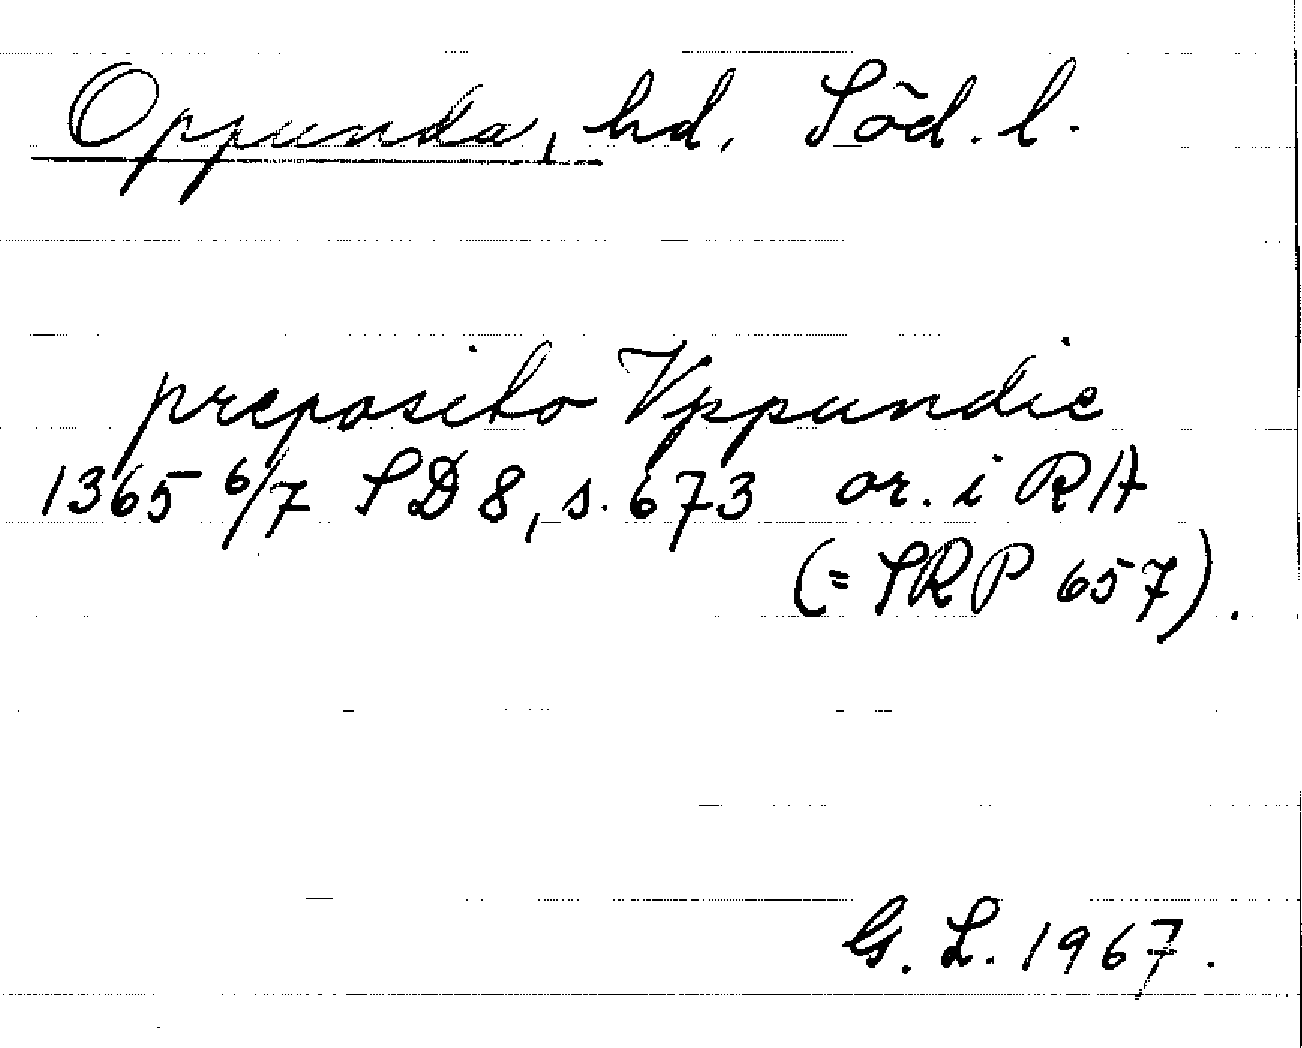 Oppunda, hd. Söd. l.
preposito Vppundie
1365 6/7 SD 8, s. 673 or. i RA
(= SRP 657).
G. L. 1967.